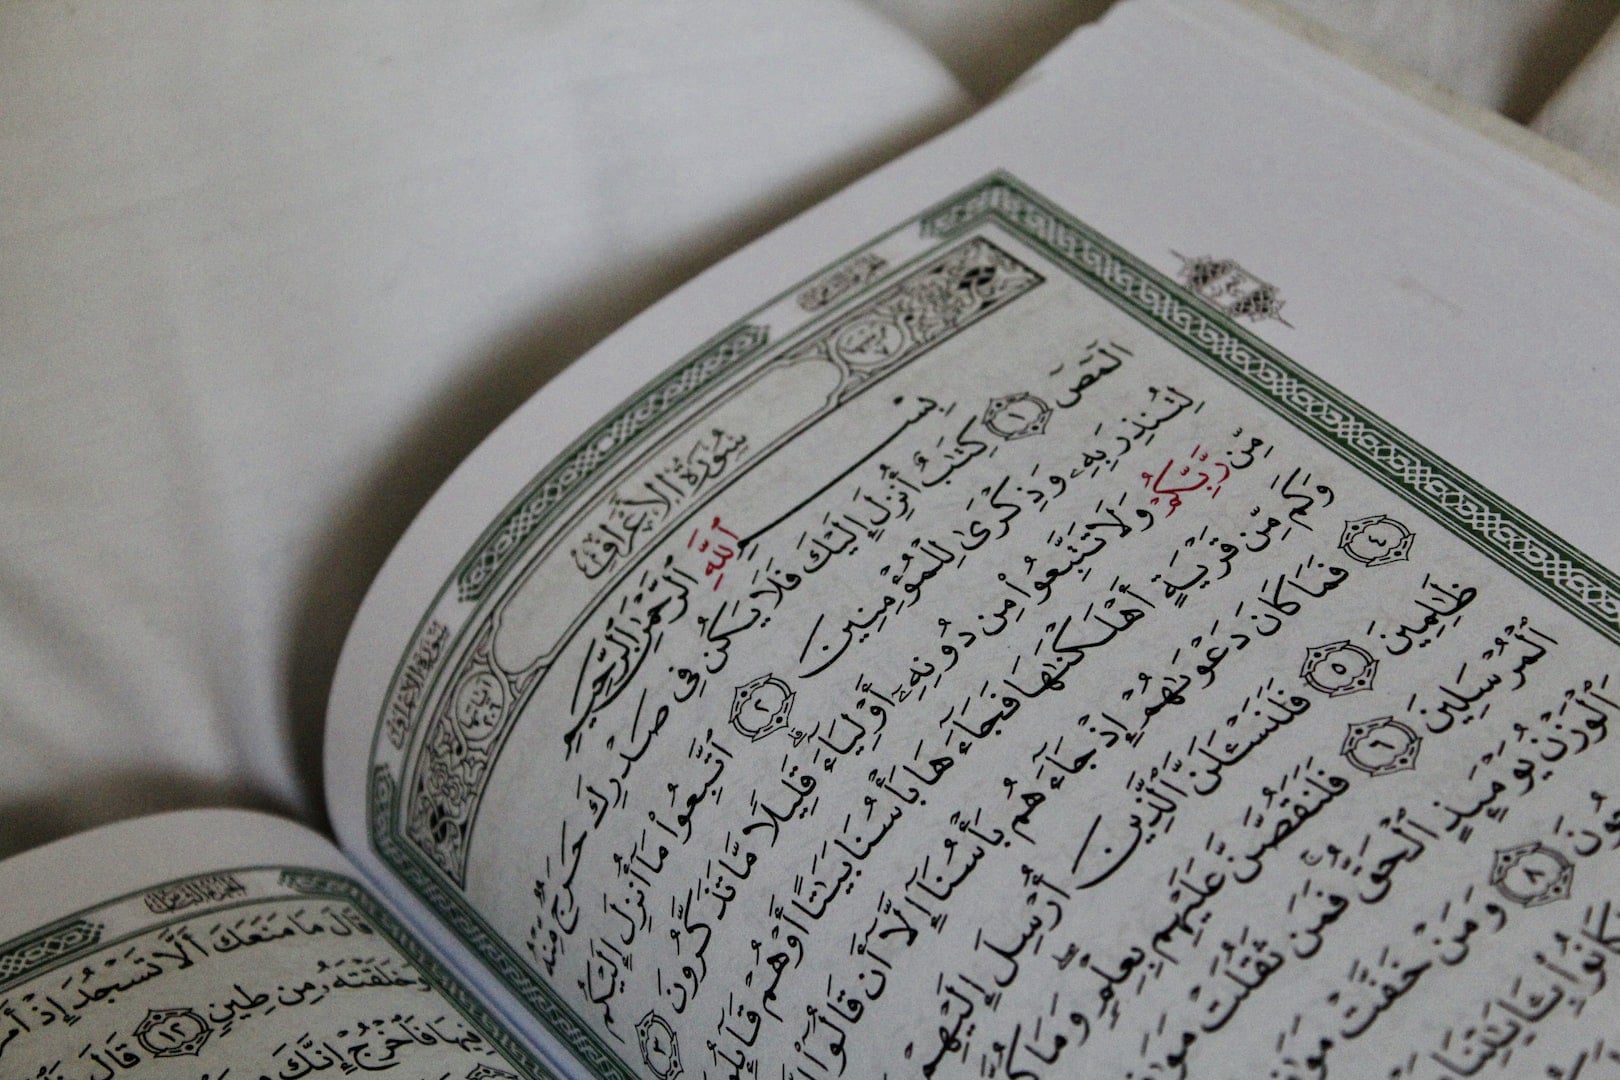 سُورَةُ الأَعْرَافِ
سُورَةُ الأَعْرَافِ
بِسْمِ ٱللَّهِ ٱلرَّحْمَٰنِ ٱلرَّحِيمِ
الٓمٓصٓ ١ كِتَٰبٌ أُنزِلَ إِلَيْكَ فَلَا يَكُن فِى صَدْرِكَ حَرَجٌ مِّنْهُ
لِتُنذِرَ بِهِۦ وَذِكْرَىٰ لِلْمُؤْمِنِينَ ٢ ٱتَّبِعُوا۟ مَآ أُنزِلَ إِلَيْكُم
مِّن رَّبِّكُمْ وَلَا تَتَّبِعُوا۟ مِن دُونِهِۦٓ أَوْلِيَآءَ قَلِيلًا مَّا تَذَكَّرُونَ ٣
وَكَم مِّن قَرْيَةٍ أَهْلَكْنَٰهَا فَجَآءَهَا بَأْسُنَا بَيَٰتًا أَوْ هُمْ قَآئِلُونَ
٤ فَمَا كَانَ دَعْوَىٰهُمْ إِذْ جَآءَهُم بَأْسُنَآ إِلَّآ أَن قَالُوٓا۟
ظَٰلِمِينَ ٥ فَلَنَسْـَٔلَنَّ ٱلَّذِينَ أُرْسِلَ إِلَيْهِمْ
ٱلْمُرْسَلِينَ ٦ فَلَنَقُصَّنَّ عَلَيْهِم بِعِلْمٍ وَمَا كُنَّا
وَٱلْوَزْنُ يَوْمَئِذٍ ٱلْحَقُّ فَمَن ثَقُلَتْ مَوَٰزِينُهُۥ
٨ وَمَنْ خَفَّتْ مَوَٰزِينُهُۥ
كَانُوا۟ بِـَٔايَٰتِنَا
قَالَ مَا مَنَعَكَ أَلَّا تَسْجُدَ إِذْ أَمَرْتُكَ
وَخَلَقْتَهُۥ مِن طِينٍ ١٢ قَالَ
فِيهَا فَٱخْرُجْ إِنَّكَ